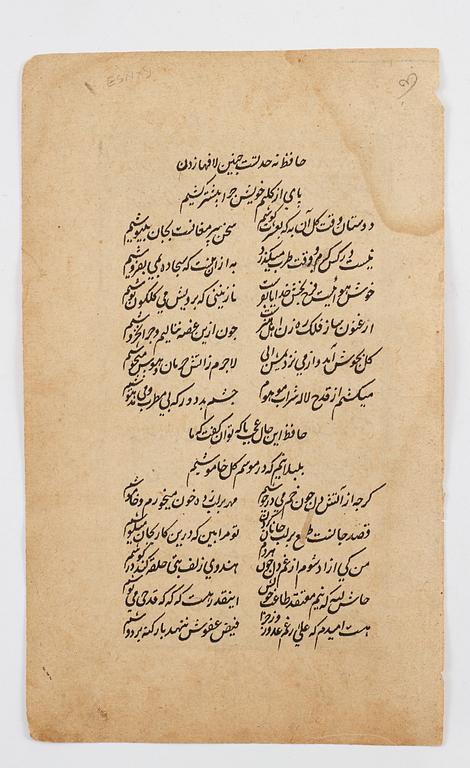 حافظ نه حد تست چنین لافها زدن
پای از کلیم خویش چرا بیشتر کشیم
دوستان وقت کل آن به که بعشرت کوشیم سخن پیر مغانست بجان بنیوشیم
نیست در کس کرم و وقت طرب میکذرد چاره آنست که سجاده بمی بفروشیم
خوش هوائیست فرح بخش خدایا بفرست نازنینی که برویش می کلکون نوشیم
ارغنون ساز فلک رهزن اهل هنرست چون ازین غصه ننالیم و چرا نخروشیم
کل بجوش آمد و از می نزدیمش آبی لاجرم زآتش حرمان و هوس میجوشیم
میکشیم از قدح لاله شراب موهوم چشم بد دور که بی مطرب و می مدهوشیم
حافظ این حال عجب با که توان کفت که ما
بلبلانیم که در موسم کل خاموشیم
کرچه از آتش دل چون خم می در جوشم مهر بر لب زده خون میخورم و خاموشم
قصد جانست طمع در لب جانان کردن تو مرا بین که درین کار بجان میکوشم
من کی آزاد شوم از غم دل چون هردم هندوی زلف بتی حلقه کند در کوشم
حاش لله که نیم معتقد طاعت خویش اینقدر هست که که که قدحی می نوشم
هست امیدم که علی رغم عدو روز جزا فیض عفوش ننهد بار کنه بر دوشم